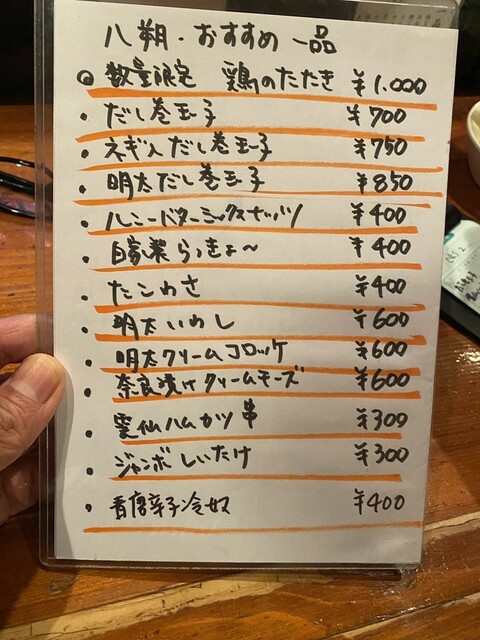 八朔・おすすめ一品
◎ 数量限定 鶏のたたき ¥1.000
・だし巻玉子 ¥700
・ネギ入だし巻玉子 ¥750
・明太だし巻玉子 ¥850
・ハニーバターミックスナッツ ¥400
・自家製らっきょ〜 ¥400
・たこわさ ¥400
・明太いわし ¥600
・明太クリームコロッケ ¥600
・奈良漬けクリームチーズ ¥600
・雲仙ハムカツ串 ¥300
・ジャンボしいたけ ¥300
・青唐辛子冷奴 ¥400